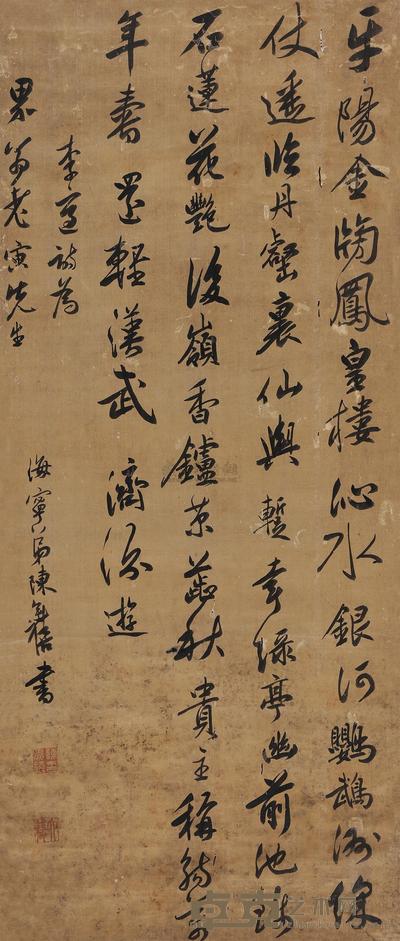 平陽金牓鳳皇樓沁水銀河鸚鵡洲綵
仗遙臨丹壑裏仙輿暫幸綠亭幽前池錦
石蓮花艷後嶺香鑪桂蕊秋貴主稱觴萬
年壽還輕漢武濟汾遊
李適詩為
翁老寅先生
海寧弟陳奕禧書